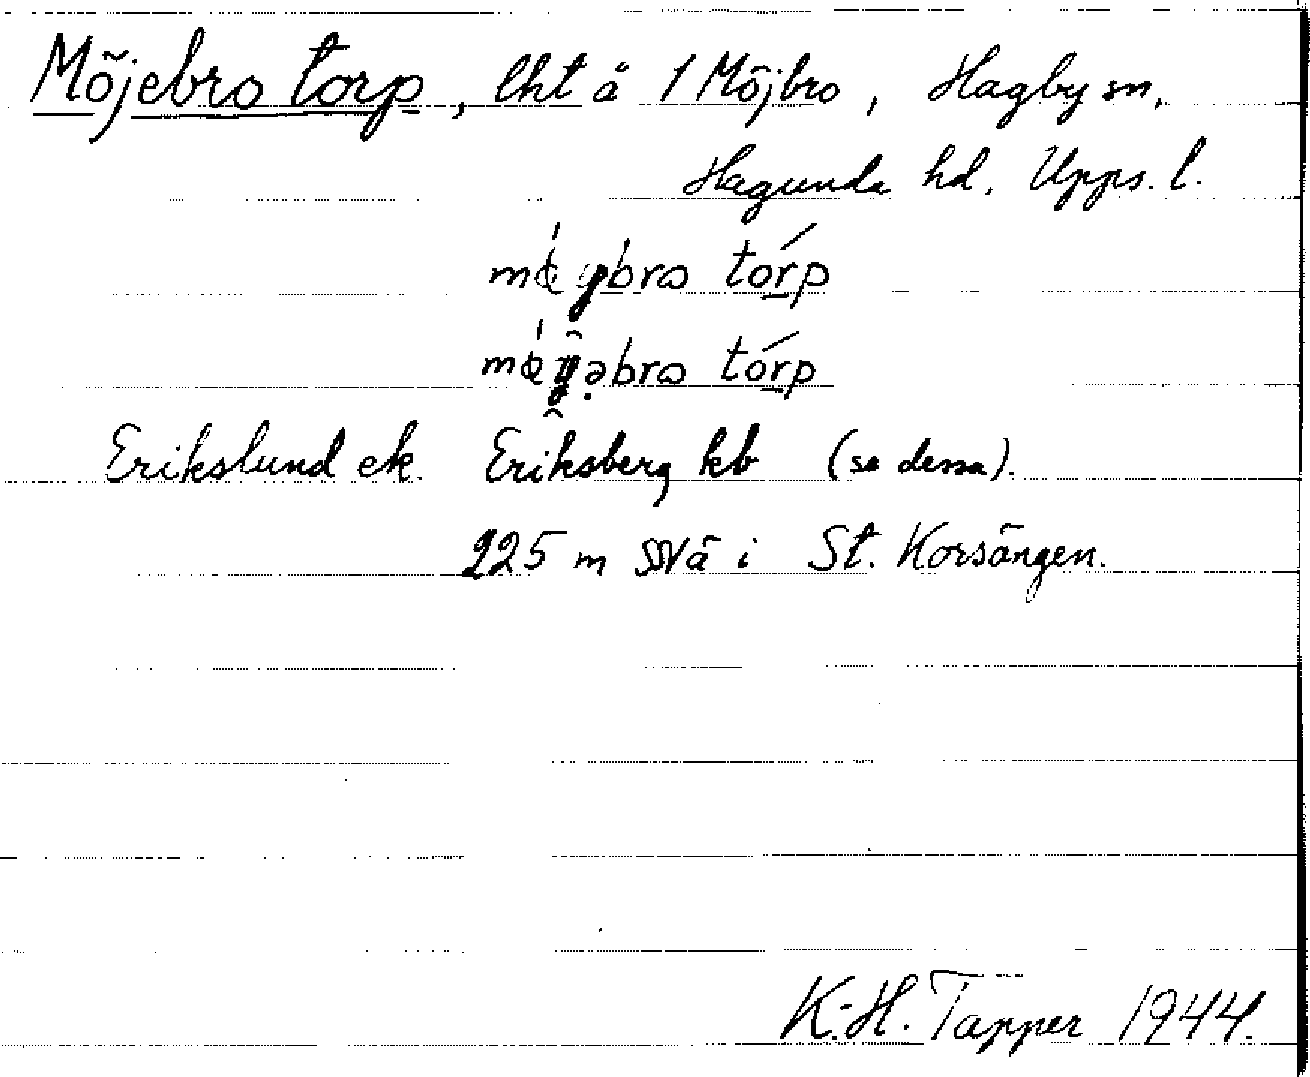 Möjebro torp, lht å 1 Möjbro, Hagby sn,
Hagunda hd. Upps. l.
tórp
tórp
Erikslund ek. Eriksberg kb (se dessa).
225 m SSV ä i St. Korsängen.
K.-H. Tapper 1944.